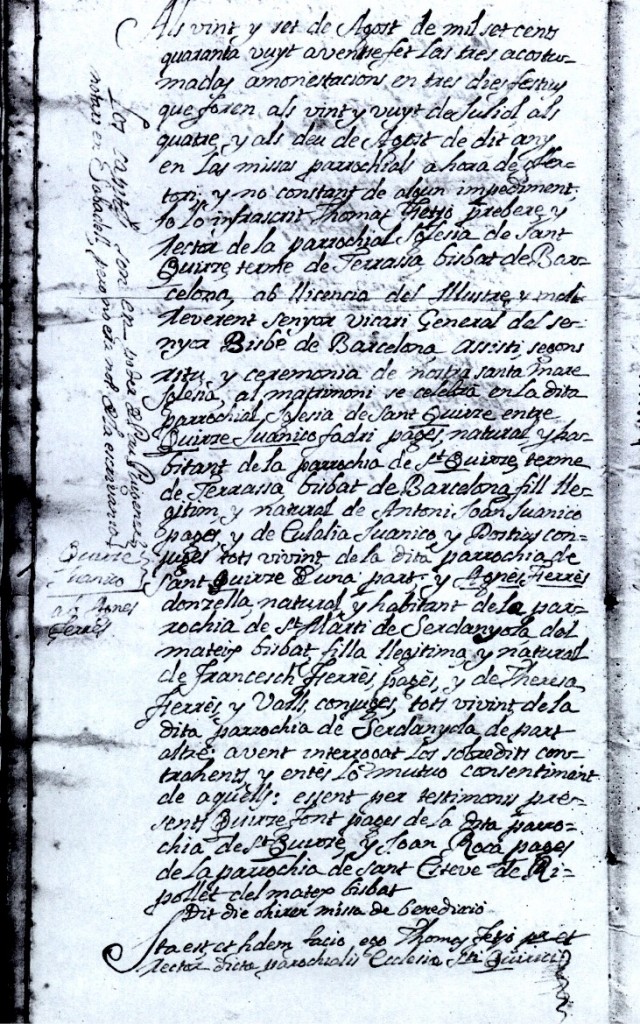 Als vint y set de Agost de mil set cents
quaranta vuyt avent se fet las tres acostu-
madas amonestacions en tres dies festius
que foren als vint y vuyt de Juliol als
quatre, y als deu de Agost de dit any
en las missas parrochials a hora de ofer-
tori, y no constant de algun impediment,
Jo lo infrascrit Thomas prebere y
Rector de la parrochial Iglesia de Sant
Quirze, terme de Terrassa, bisbat de Bar-
celona, ab llicencia del Illustre, y molt
Reverent senyor vicari General del se-
nyor Bisbe de Barcelona assisti segons
ritu, y ceremonia de nostra santa mare
Iglesia, al matrimoni se celebrà en la dita
parrochial Iglesia de Sant Quirze entre
Quirze Juanico fadri pages, natural y ha-
bitant de la parrochia de St Quirze, terme
de Terrassa, bisbat de Barcelona, fill lle-
gitim, y natural de Antoni Joan Juanico
pages, y de Eulalia Juanico y con-
juges tots vivint de la dita parrochia de
Sant Quirze de una part, y Agnès Ferrès
donzella, natural y habitant de la par-
rochia de St Marti de Serdanyola del
mateix bisbat, filla llegitima, y natural
de Francesch Ferrès pagès, y de Theresa
Ferrès, y Valls, conjuges, tots vivint de la
dita parrochia de Serdanyola de part
altre: avent interrogat los sobredits con-
trahents, y entès lo mutuo consentiment
de aquells: essent per testimonis pre-
sents Quirze font pages de la dita parro-
chia de St Quirze, y Joan Roca pages
de la parrochia de Sant Esteve de Ri-
pollet del mateix bisbat
Dit die ohiren missa de benedicio
Ita est et fidem facio, ego Thomas pr et
Rector dicta parochialis Ecclesia Sti Quirici
Los capitols son en poder de Pau
notari en Sabadell,
Quirze
Juanico
ab Agnes
Ferrès